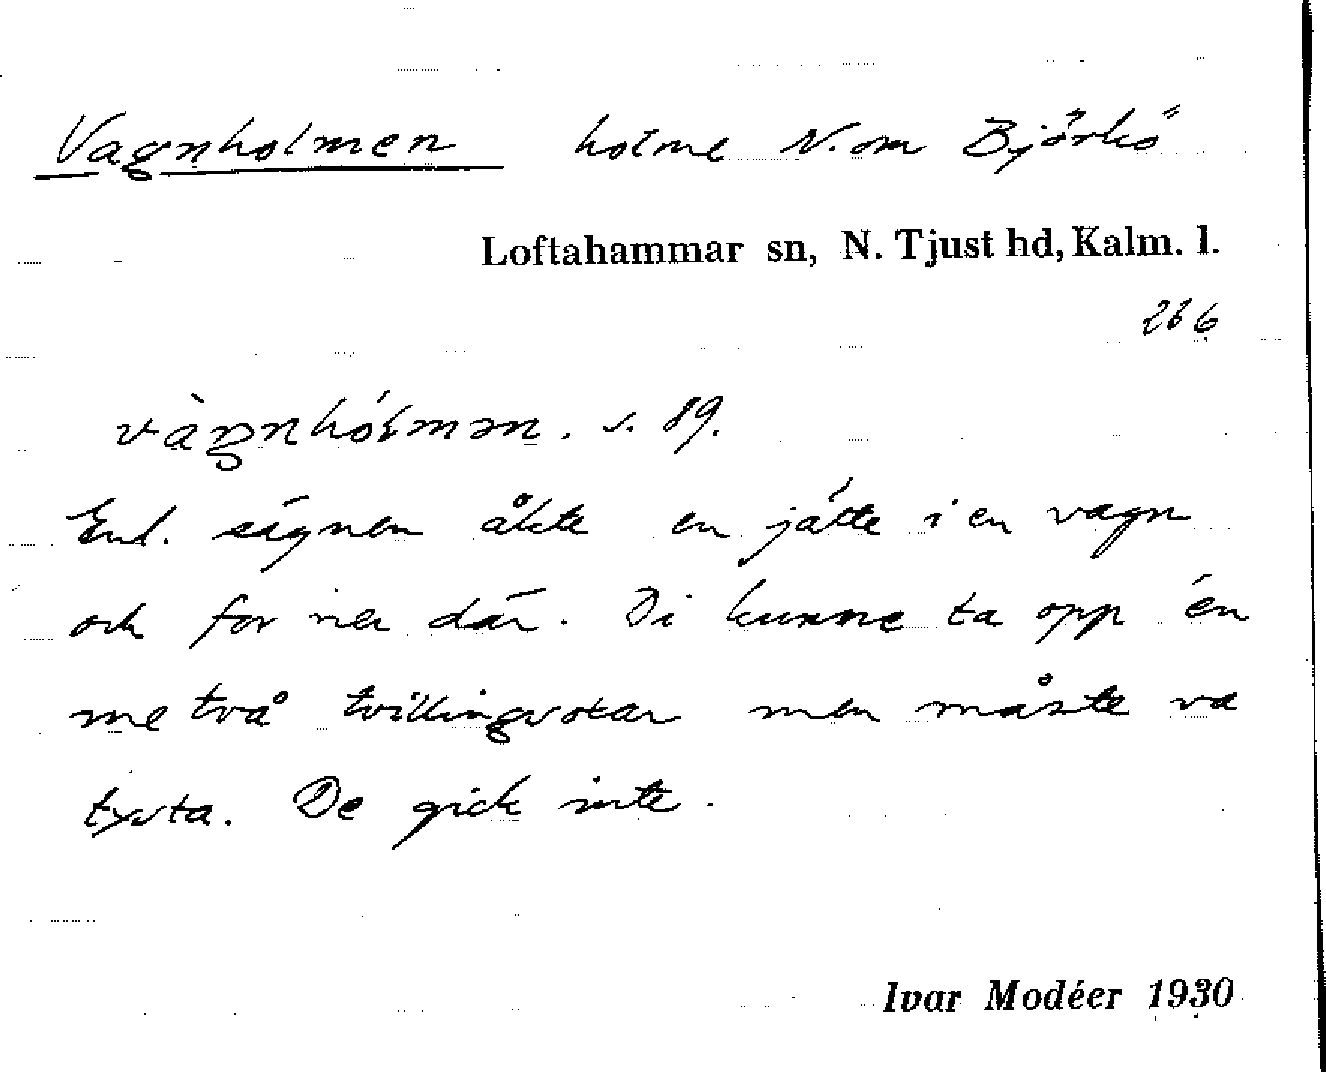 Vagnholmen holme N. om Björkö
Loftahammar sn, N. Tjust hd, Kalm. l.
266
vàgnhólmən. s. 89.
Enl. sägnen åkte en jätte i en vagn
och for ner där. Di kunne ta opp én
me två tvillingoxar men måste va
tysta. De gick inte.
Ivar Modéer 1930